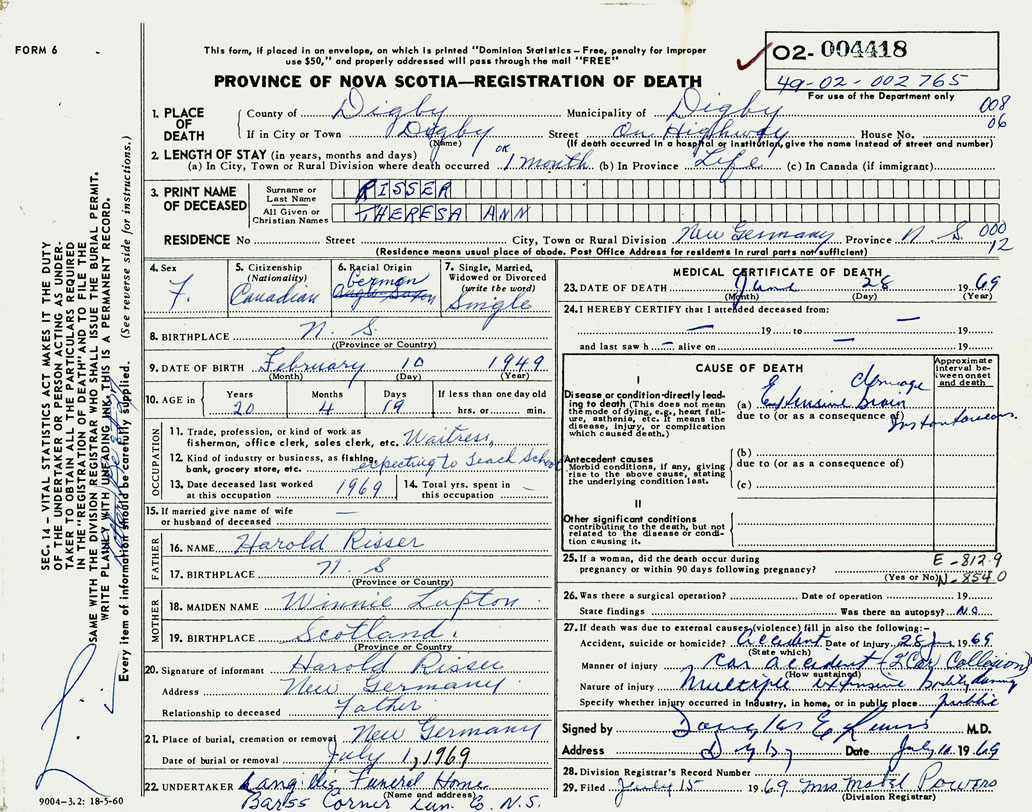 FORM 6
This form, if placed in an envelope, on which is printed "Dominion Statistics — Free, penalty for improper
use $50," and properly addressed will pass through the mail "FREE"
PROVINCE OF NOVA SCOTIA—REGISTRATION OF DEATH
02-004418
49-02-002765
For use of the Department only
008
06
1. PLACE OF DEATH
County of Digby Municipality of Digby
If in City or Town Digby Street On Highway House No.
(Name) (If death occurred in a hospital or institution, give the name instead of street and number)
2. LENGTH OF STAY (in years, months and days)
(a) In City, Town or Rural Division where death occurred 1 month (b) In Province Life (c) In Canada (if immigrant)
3. PRINT NAME OF DECEASED
Surname or Last Name RISSER
All Given or Christian Names THERESA ANN
RESIDENCE No Street City, Town or Rural Division New Germany Province N. S. 000
12
(Residence means usual place of abode. Post Office Address for residents in rural parts not sufficient)
4. Sex F.
5. Citizenship (Nationality) Canadian
6. Racial Origin German Anglo Saxon
7. Single, Married, Widowed or Divorced (write the word) Single
8. BIRTHPLACE N. S.
(Province or Country)
9. DATE OF BIRTH February 10 1949
(Month) (Day) (Year)
10. AGE in Years 20 Months 4 Days 19 If less than one day old hrs. or min.
OCCUPATION
11. Trade, profession, or kind of work as
fisherman, office clerk, sales clerk, etc. Waitress,
12. Kind of industry or business, as fishing,
bank, grocery store, etc. expecting to teach School
13. Date deceased last worked at this occupation 1969
14. Total yrs. spent in this occupation —
15. If married give name of wife
or husband of deceased —
FATHER
16. NAME Harold Risser
17. BIRTHPLACE N. S
(Province or Country)
MOTHER
18. MAIDEN NAME Winnie Lupton
19. BIRTHPLACE Scotland.
(Province or Country)
20. Signature of informant Harold Risser
Address New Germany
Relationship to deceased Father
21. Place of burial, cremation or removal New Germany
Date of burial or removal July 1, 1969
22. UNDERTAKER Langilles Funeral Home
(Name and address)
Barss Corner Lun. Co. N.S.
9004-3.2: 18-5-60
MEDICAL CERTIFICATE OF DEATH
23. DATE OF DEATH June 28 1969
(Month) (Day) (Year)
24. I HEREBY CERTIFY that I attended deceased from:
— 19 to — 19
and last saw h — alive on — 19
CAUSE OF DEATH
Approximate interval between onset and death
I
Disease or condition directly leading to death (This does not mean the mode of dying, e.g., heart failure, asthenia, etc. It means the disease, injury, or complication which caused death.)
(a) Extensive brain damage
due to (or as a consequence of) Instantaneous.
Antecedent causes
Morbid conditions, if any, giving rise to the above cause, stating the underlying condition last.
(b)
due to (or as a consequence of)
(c)
II
Other significant conditions
contributing to the death, but not related to the disease or condition causing it.
25. If a woman, did the death occur during
pregnancy or within 90 days following pregnancy?
(Yes or No)
E-812.9
N-854.0
26. Was there a surgical operation? Date of operation 19
State findings Was there an autopsy? No
27. If death was due to external causes (violence) fill in also the following:—
Accident, suicide or homicide? Accident Date of injury 28 June 1969
(State which)
Manner of injury Car accident (2 Car Collision)
(How sustained)
Nature of injury Multiple extensive bodily damage
Specify whether injury occurred in industry, in home, or in public place public
Signed by Douglas E Lewis M.D.
Address Digby Date July 10 1969
28. Division Registrar's Record Number
29. Filed July 15 1969 Mrs Powers
(Division Registrar)
SEC. 14 – VITAL STATISTICS ACT MAKES IT THE DUTY
OF THE UNDERTAKER OR PERSON ACTING AS UNDER-
TAKER TO OBTAIN ALL THE PARTICULARS REQUIRED
IN THE "REGISTRATION OF DEATH" AND TO FILE THE
SAME WITH THE DIVISION REGISTRAR WHO SHALL ISSUE THE BURIAL PERMIT.
WRITE PLAINLY WITH UNFADING INK, THIS IS A PERMANENT RECORD.
Every item of information should be carefully supplied. (See reverse side for instructions.)